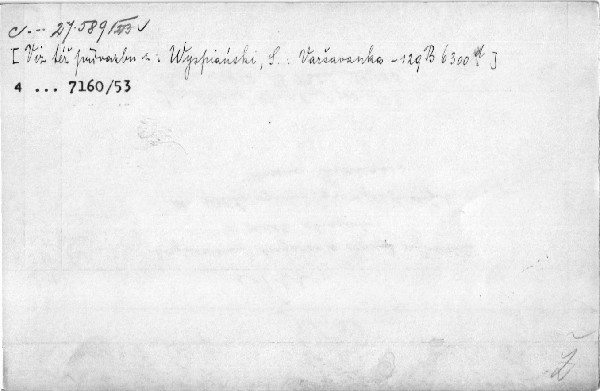 c ... 27.589
[ Viz též přívazbu : Wyspiański, S.: Varšavanka - 129 B 6300 ]
4 ... 7160/53
Ž